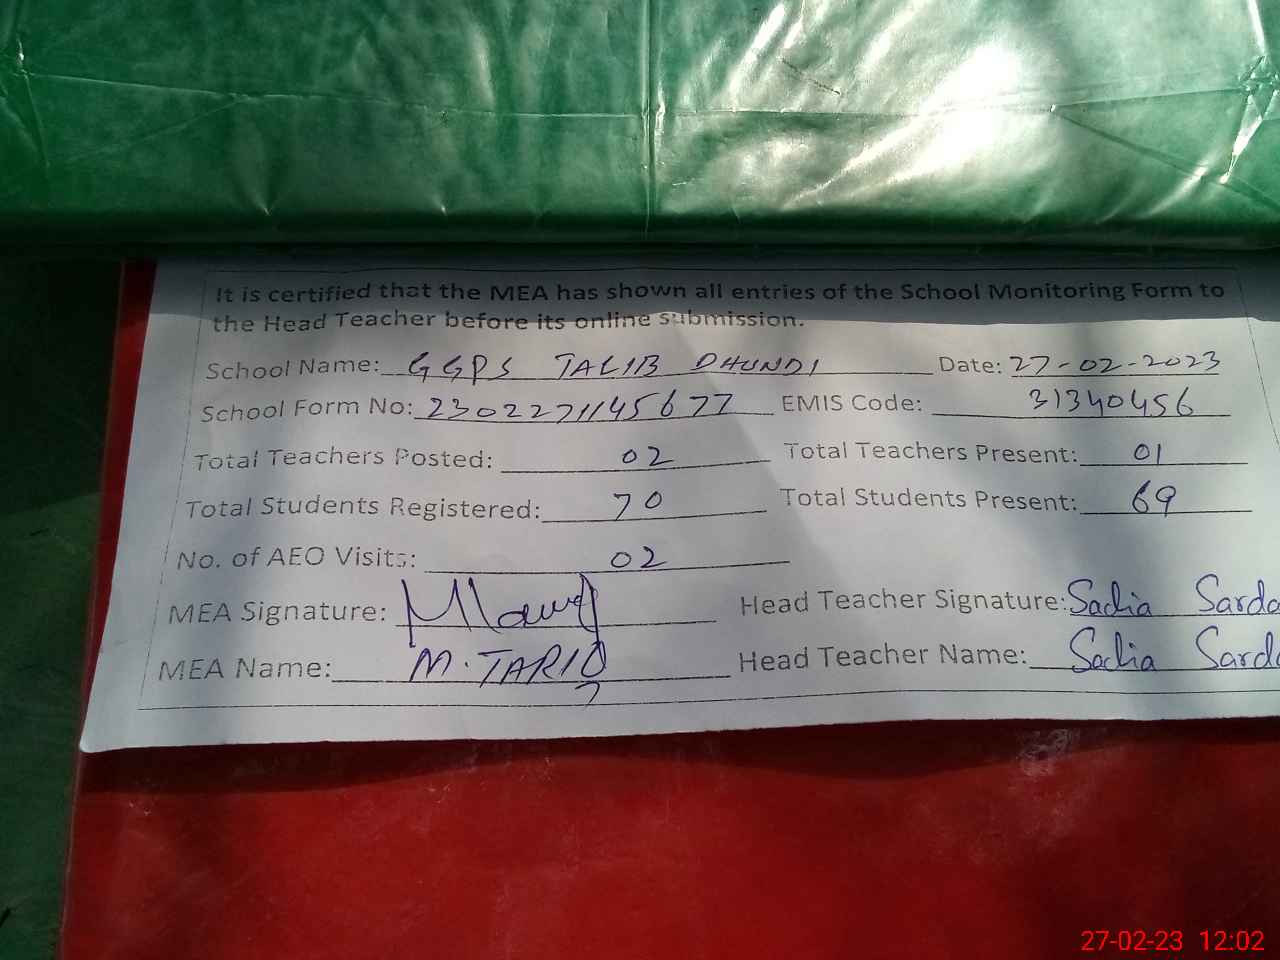 It is certified that the MEA has shown all entries of the School Monitoring Form to
the Head Teacher before its online submission.
School Name: GGPS TALIB DHUNDI Date: 27-02-2023
School Form No: 2302271145677 EMIS Code: 31340456
Total Teachers Posted: 02 Total Teachers Present: 01
Total Students Registered: 70 Total Students Present: 69
No. of AEO Visits: 02
MEA Signature: Head Teacher Signature: Sadia Sarda
MEA Name: M. TARIQ Head Teacher Name: Sadia Sarda
27-02-23 12:02